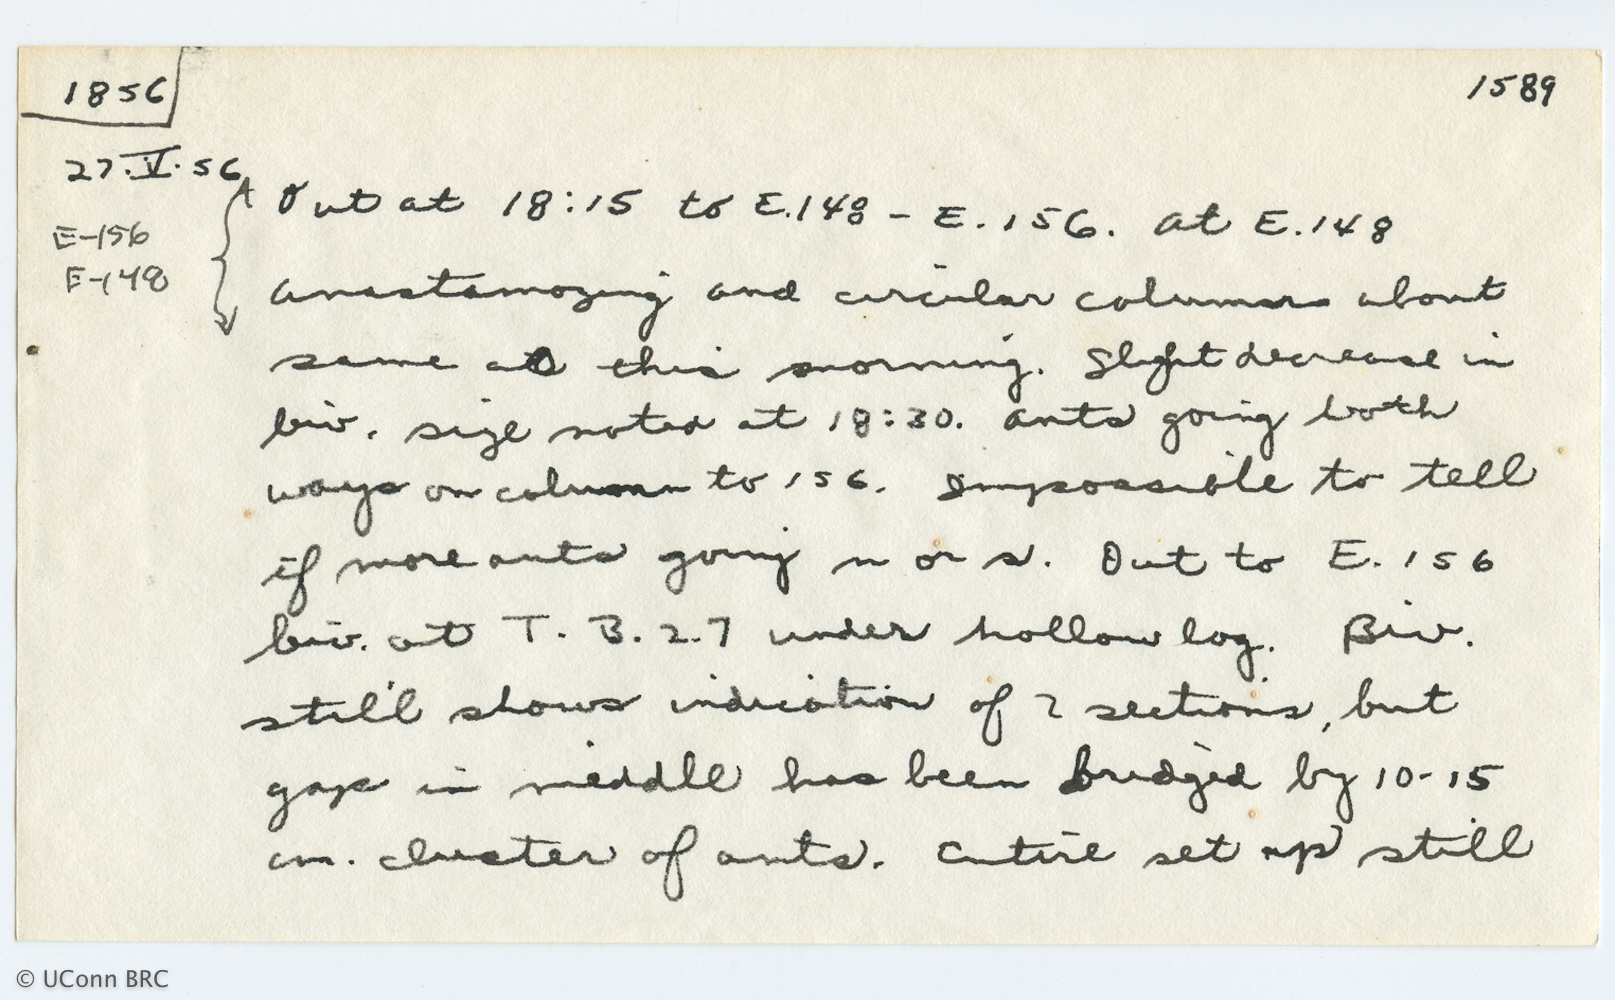 1856
1589
27.V.56
E-156
E-148
Out at 18:15 to E.148 - E.156. At E.148
anastamozing and circular columns about
same as this morning. Slight decrease in
biv. size noted at 18:30. Ants going both
ways on column to 156. Impossible to tell
if more ants going n or s. Out to E. 156
biv. at T. B. 2.7 under hollow log. Biv.
still shows indication of 2 sections, but
gap in middle has been bridged by 10-15
cm. cluster of ants. Entire set up still
© UConn BRC